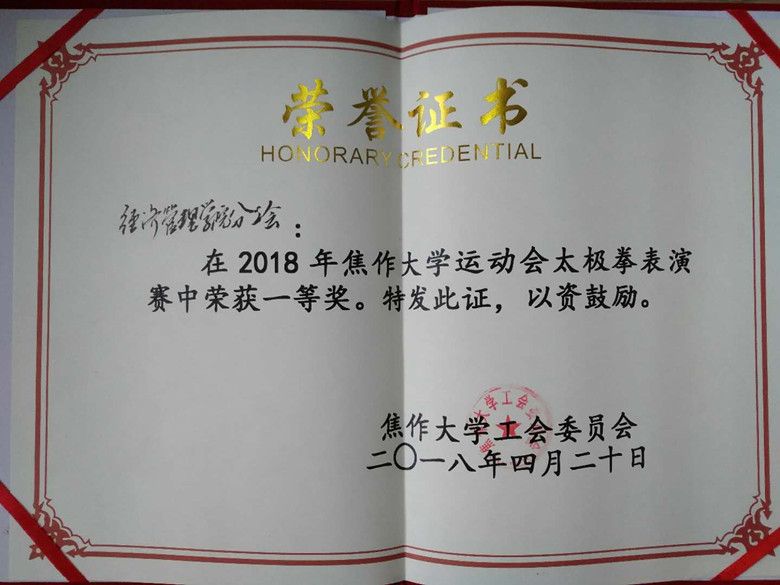 荣誉证书
HONORARY CREDENTIAL
经济管理学院分会：
在2018年焦作大学运动会太极拳表演
赛中荣获一等奖。特发此证，以资鼓励。
焦作大学工会委员会
二〇一八年四月二十日